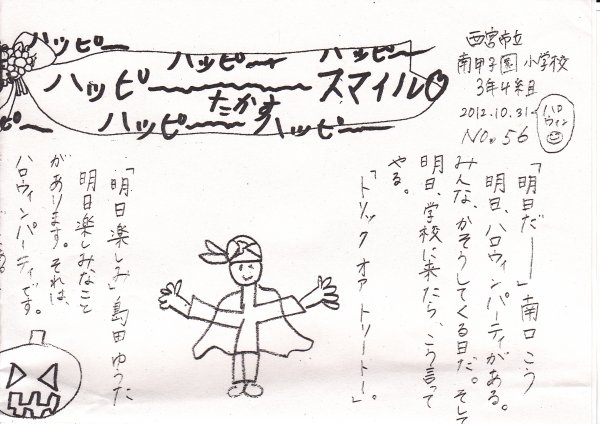 ハッピー
ハッピー
ハッピー
ハッピー スマイル
たかす
ハッピー
ハッピー
ピー
西宮市立
南甲子園小学校
3年4組
2012.10.31
No. 56
ハロウィン
「明日だーー」南口こう
明日、ハロウィンパーティがある。
みんな、かそうしてくる日だ。そして
明日、学校に来たら、こう言って
やる。
「トリック オア トリートー!」。
「明日楽しみ」島田ゆうた
明日楽しみなこと
があります。それは、
ハロウィンパーティです。